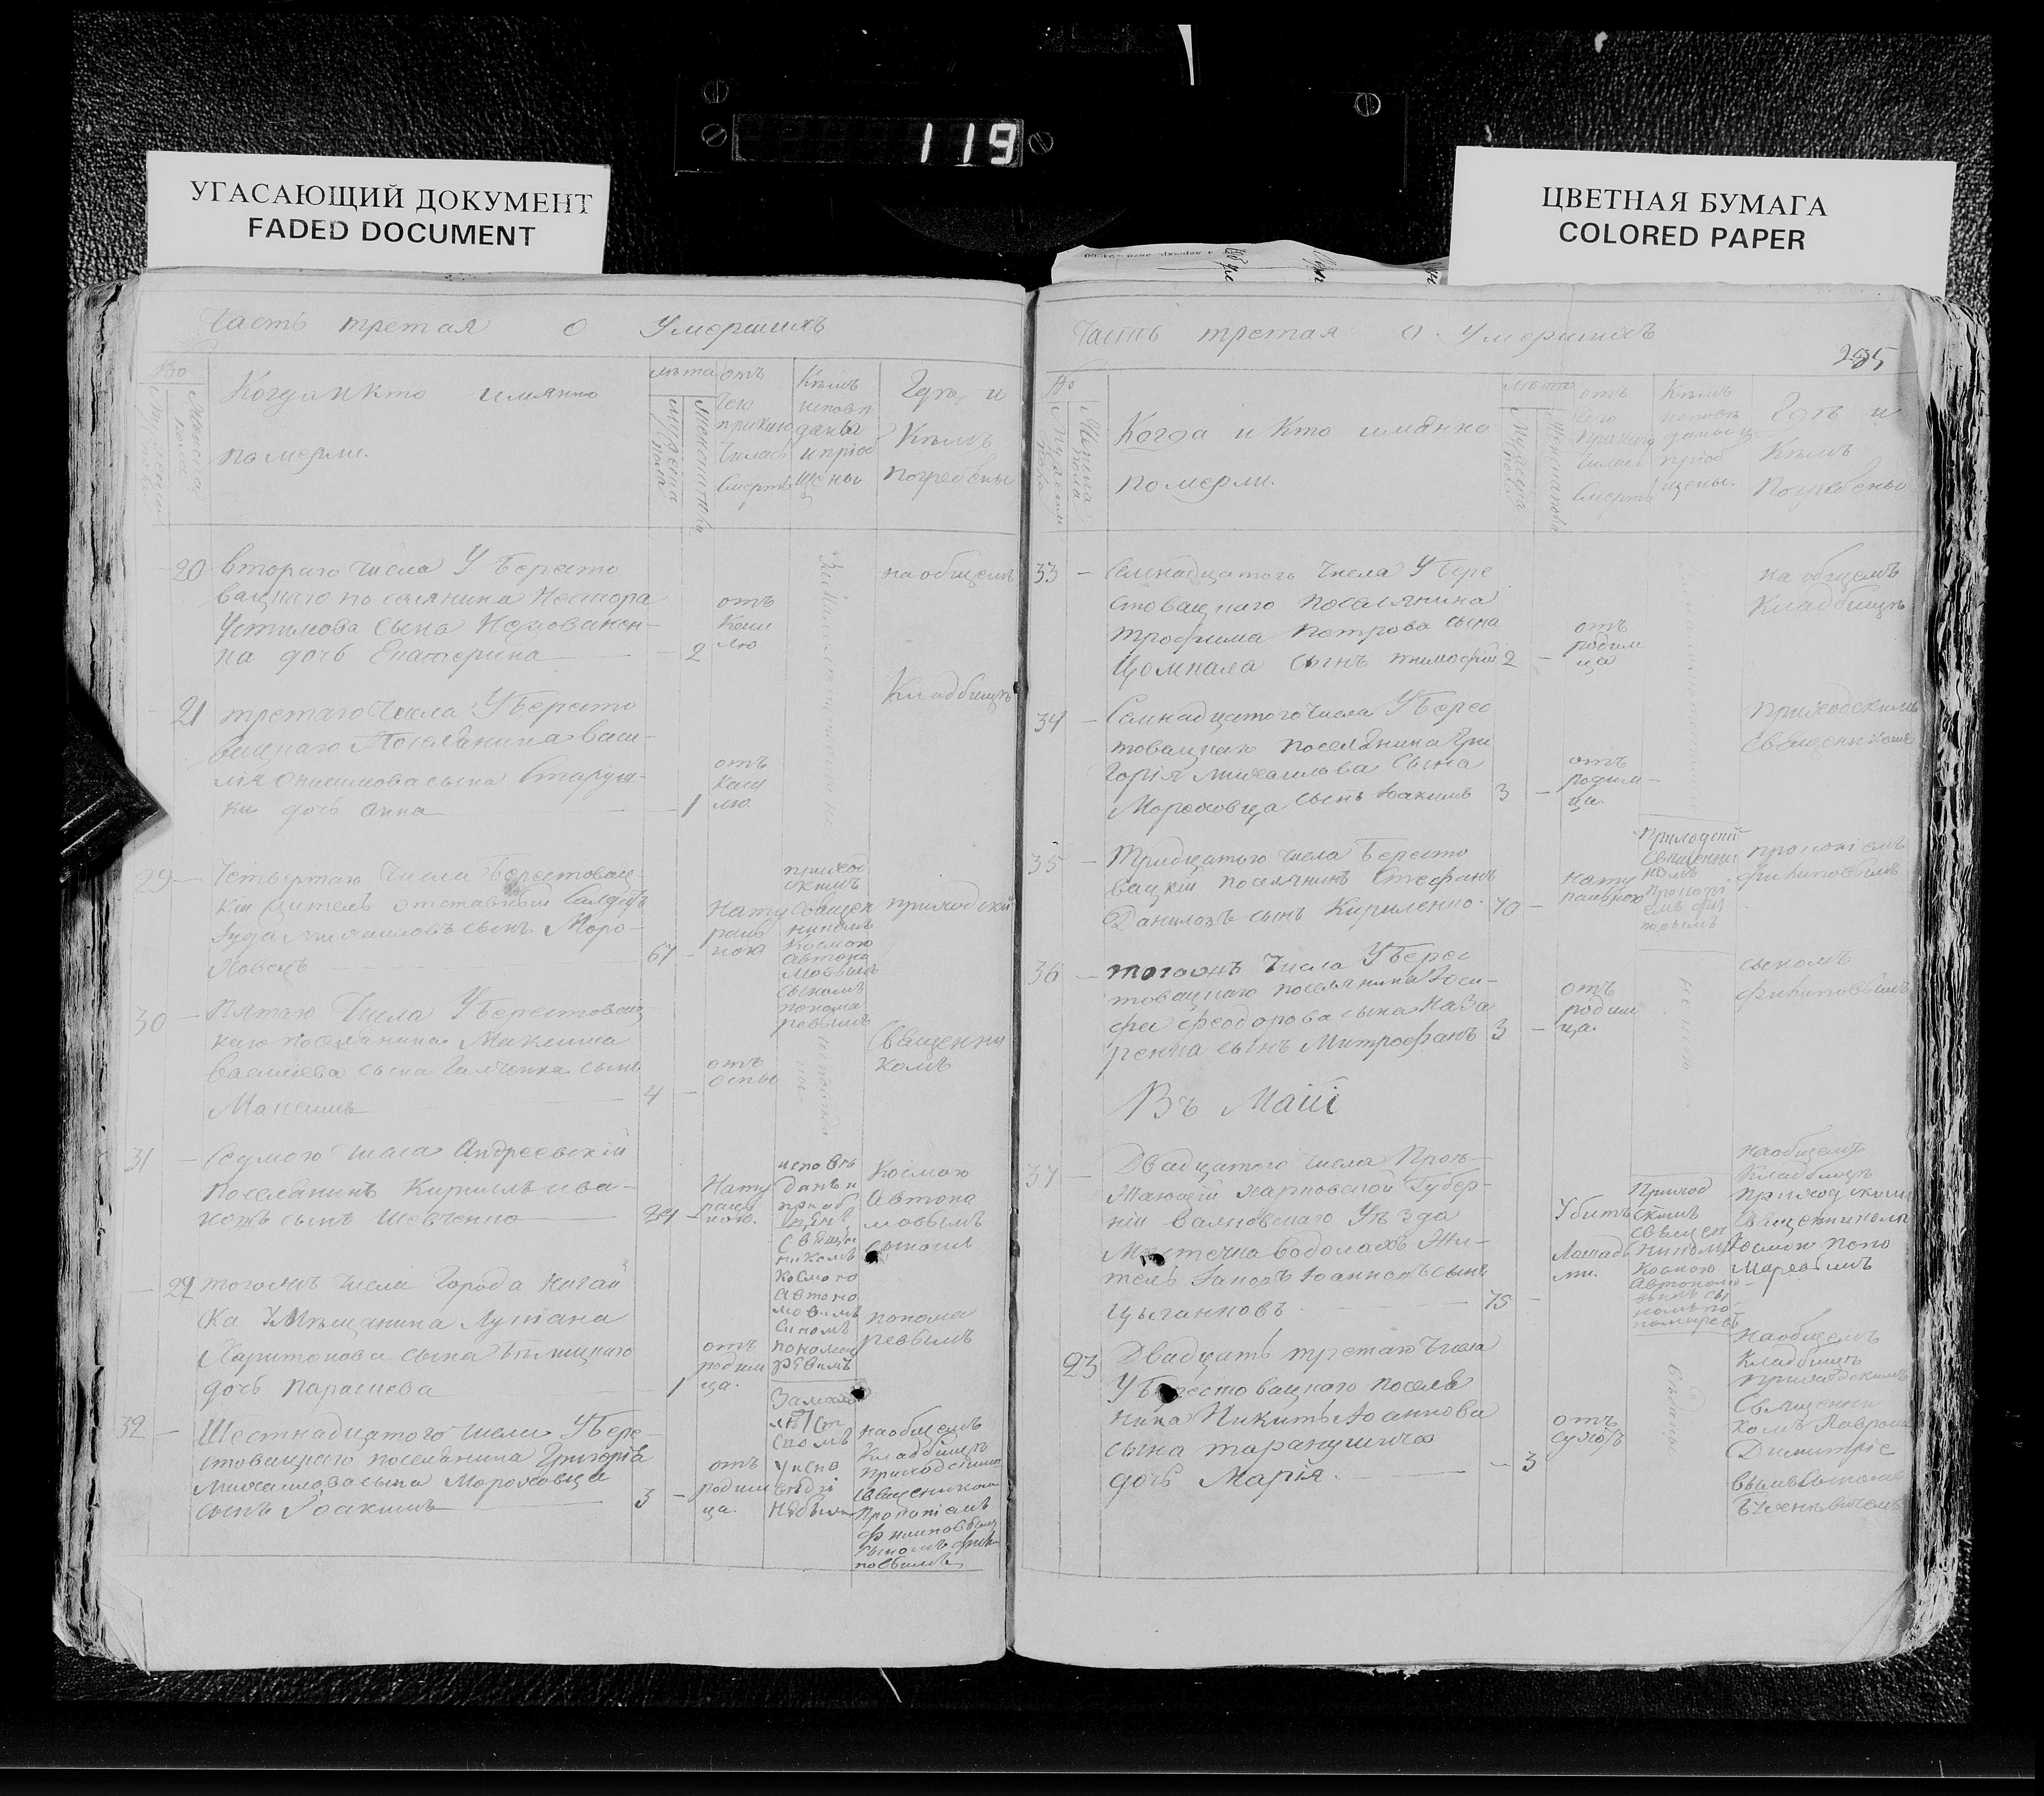 119
УГАСАЮЩИЙ ДОКУМЕНТ
FADED DOCUMENT
ЦВЕТНАЯ БУМАГА
COLORED PAPER
Часть третая о Умершихъ
Когда и кто имянно
померли.
лѣта
отъ
чего
приклю
чилась
смерть
Кѣмъ
исповѣ
даны
и пріоб
щены
Гдѣ и
Кѣмъ
погребены
20 втораго числа У Бересто
вацкаго поселянина Нестора
Устимова сына
дочь Екатерина 2
отъ
каш
лю
на общемъ
Кладбищѣ
21 третаго числа У Бересто
вацкаго Поселянина Васи-
лія Онисимова сына Старуш-
ки дочь Анна 1
отъ
каш
лю
29 Четвертаго числа Берестовац-
кій житель отставный Салдатъ
Іуда Михаиловъ сынъ Моро-
ховецъ 67
Нату
раль
ною
приход
скимъ
священ
никомъ
Космою
Автоно
мовымъ
сыномъ
понома
ревымъ
приходскій
30 Пятаго Числа У Берестовац-
каго поселянина Максима
Василиева сына Галченка сынъ
Максимъ 4
отъ
оспы
Священни
комъ
31 Седмого числа Андреевскій
Поселянинъ Кириллъ ива-
новъ сынъ Шевченко
Нату
раль
ною.
исповѣ
данъ и
пріоб
щенъ
Священ
никомъ
Космою
Автоно
мовымъ
сыномъ
понома
ревымъ
Космою
Автоно
мовымъ
сыномъ
понома
ревымъ
22 тогожъ числа Города Ногай
ска У Мѣщанина Лукіана
Харитонова сына Бѣлицкаго
дочь Парасцева 1
отъ
родим
ца.
32 Шестнадцатого числа У Бере-
стовацкаго поселянина Григорія
Михаилова сына Мороховца
сынъ Іоакимъ 3
отъ
родим
ца.
на общемъ
Кладбищѣ
приходскимъ
священникомъ
Прокопіемъ
Филиповымъ
сыномъ
Часть третая о Умершихъ
235
Когда и Кто имянно
померли.
отъ
чего
приклю
чилась
смерть
Кѣмъ
исповѣ
даны и
пріоб
щены.
Гдѣ и
Кѣмъ
погребены
33 Семнадцатого числа У Бере
стовацкаго поселянина
трофима петрова сына
сынъ тимофей 2
отъ
родим
ца
на общемъ
Кладбищѣ
34 Семнадцатого числа У Берес
товацкаго поселянина Гри
горія михаилова сына
Мороховца сынъ Іоакимъ 3
отъ
родим-
ца.
приходскимъ
священникомъ
35 Тридцатого числа Бересто
вацкій поселянинъ Стефанъ
Даниловъ сынъ Кириленко 70
нату
ральною
Приходскій
священни
комъ
Прокопі
емъ
прокопіемъ
филиповымъ
36 тогожъ числа У Берес
товацкаго поселянина Іоси-
фа Феодорова сына Наза
ренка сынъ Митрофанъ 3
отъ
родим
ца.
сыномъ
филиповымъ
Въ Маіи
37 Двадцатого числа Проѣз-
жающій харковской Губер-
ніи Валковскаго Уѣзда
Мѣстечка водолагъ Жи-
тель Іаковъ Іоанновъ сынъ
Цыганковъ 75
Убитъ
Лошадь
ми.
Приход
скимъ
священ
никомъ
Космою
Автономо-
вымъ сы
номъ по
номаревъ
на общемъ
Кладбищѣ
приходскимъ
Священникомъ
Космою Поно
маревымъ
23 Двадцать третаго числа
У Берестовацкаго поселя
нина Никиты Іоаннова
сына таранушича
дочь Марія. 3
отъ
сухотъ
на общемъ
Кладбищѣ
приходскимъ
Священни
комъ Лавромъ
Димитріе
вымъ сыномъ